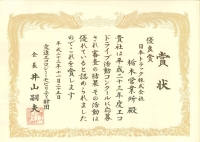 賞状
優良賞
日本トラック株式会社
栃木営業所殿
貴社は平成二十三年度エコ
ドライブ活動コンクールに応募
され審査の結果その活動は
優れていると認められました
のでここに賞します
平成二十三年十一月二十五日
交通エコロジー・モビリティ財団
会長 井山嗣夫